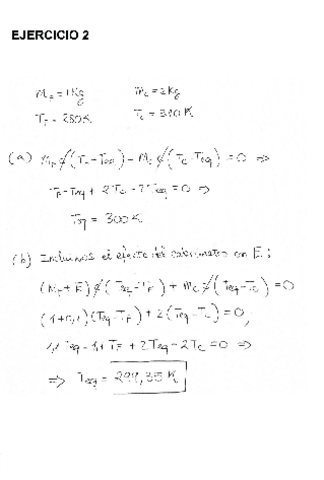 EJERCICIO 2
M_F = 1 Kg    m_c = 2 Kg
T_F = 280 K    T_c = 310 K
(a) M_F ¢ (T_F - T_eq) - M_c ¢ (T_c - T_eq) = 0 ⇒
T_F - T_eq + 2T_c - 2T_eq = 0 ⇒
T_eq = 300 K
(b) Incluimos el efecto del calorímetro con E:
(M_F + E) ¢ (T_eq - T_F) + M_c ¢ (T_eq - T_c) = 0
(1 + 0,1)(T_eq - T_F) + 2(T_eq - T_c) = 0,
1,1 T_eq - 1,1 T_F + 2T_eq - 2T_c = 0 ⇒
⇒ T_eq = 299,35 K